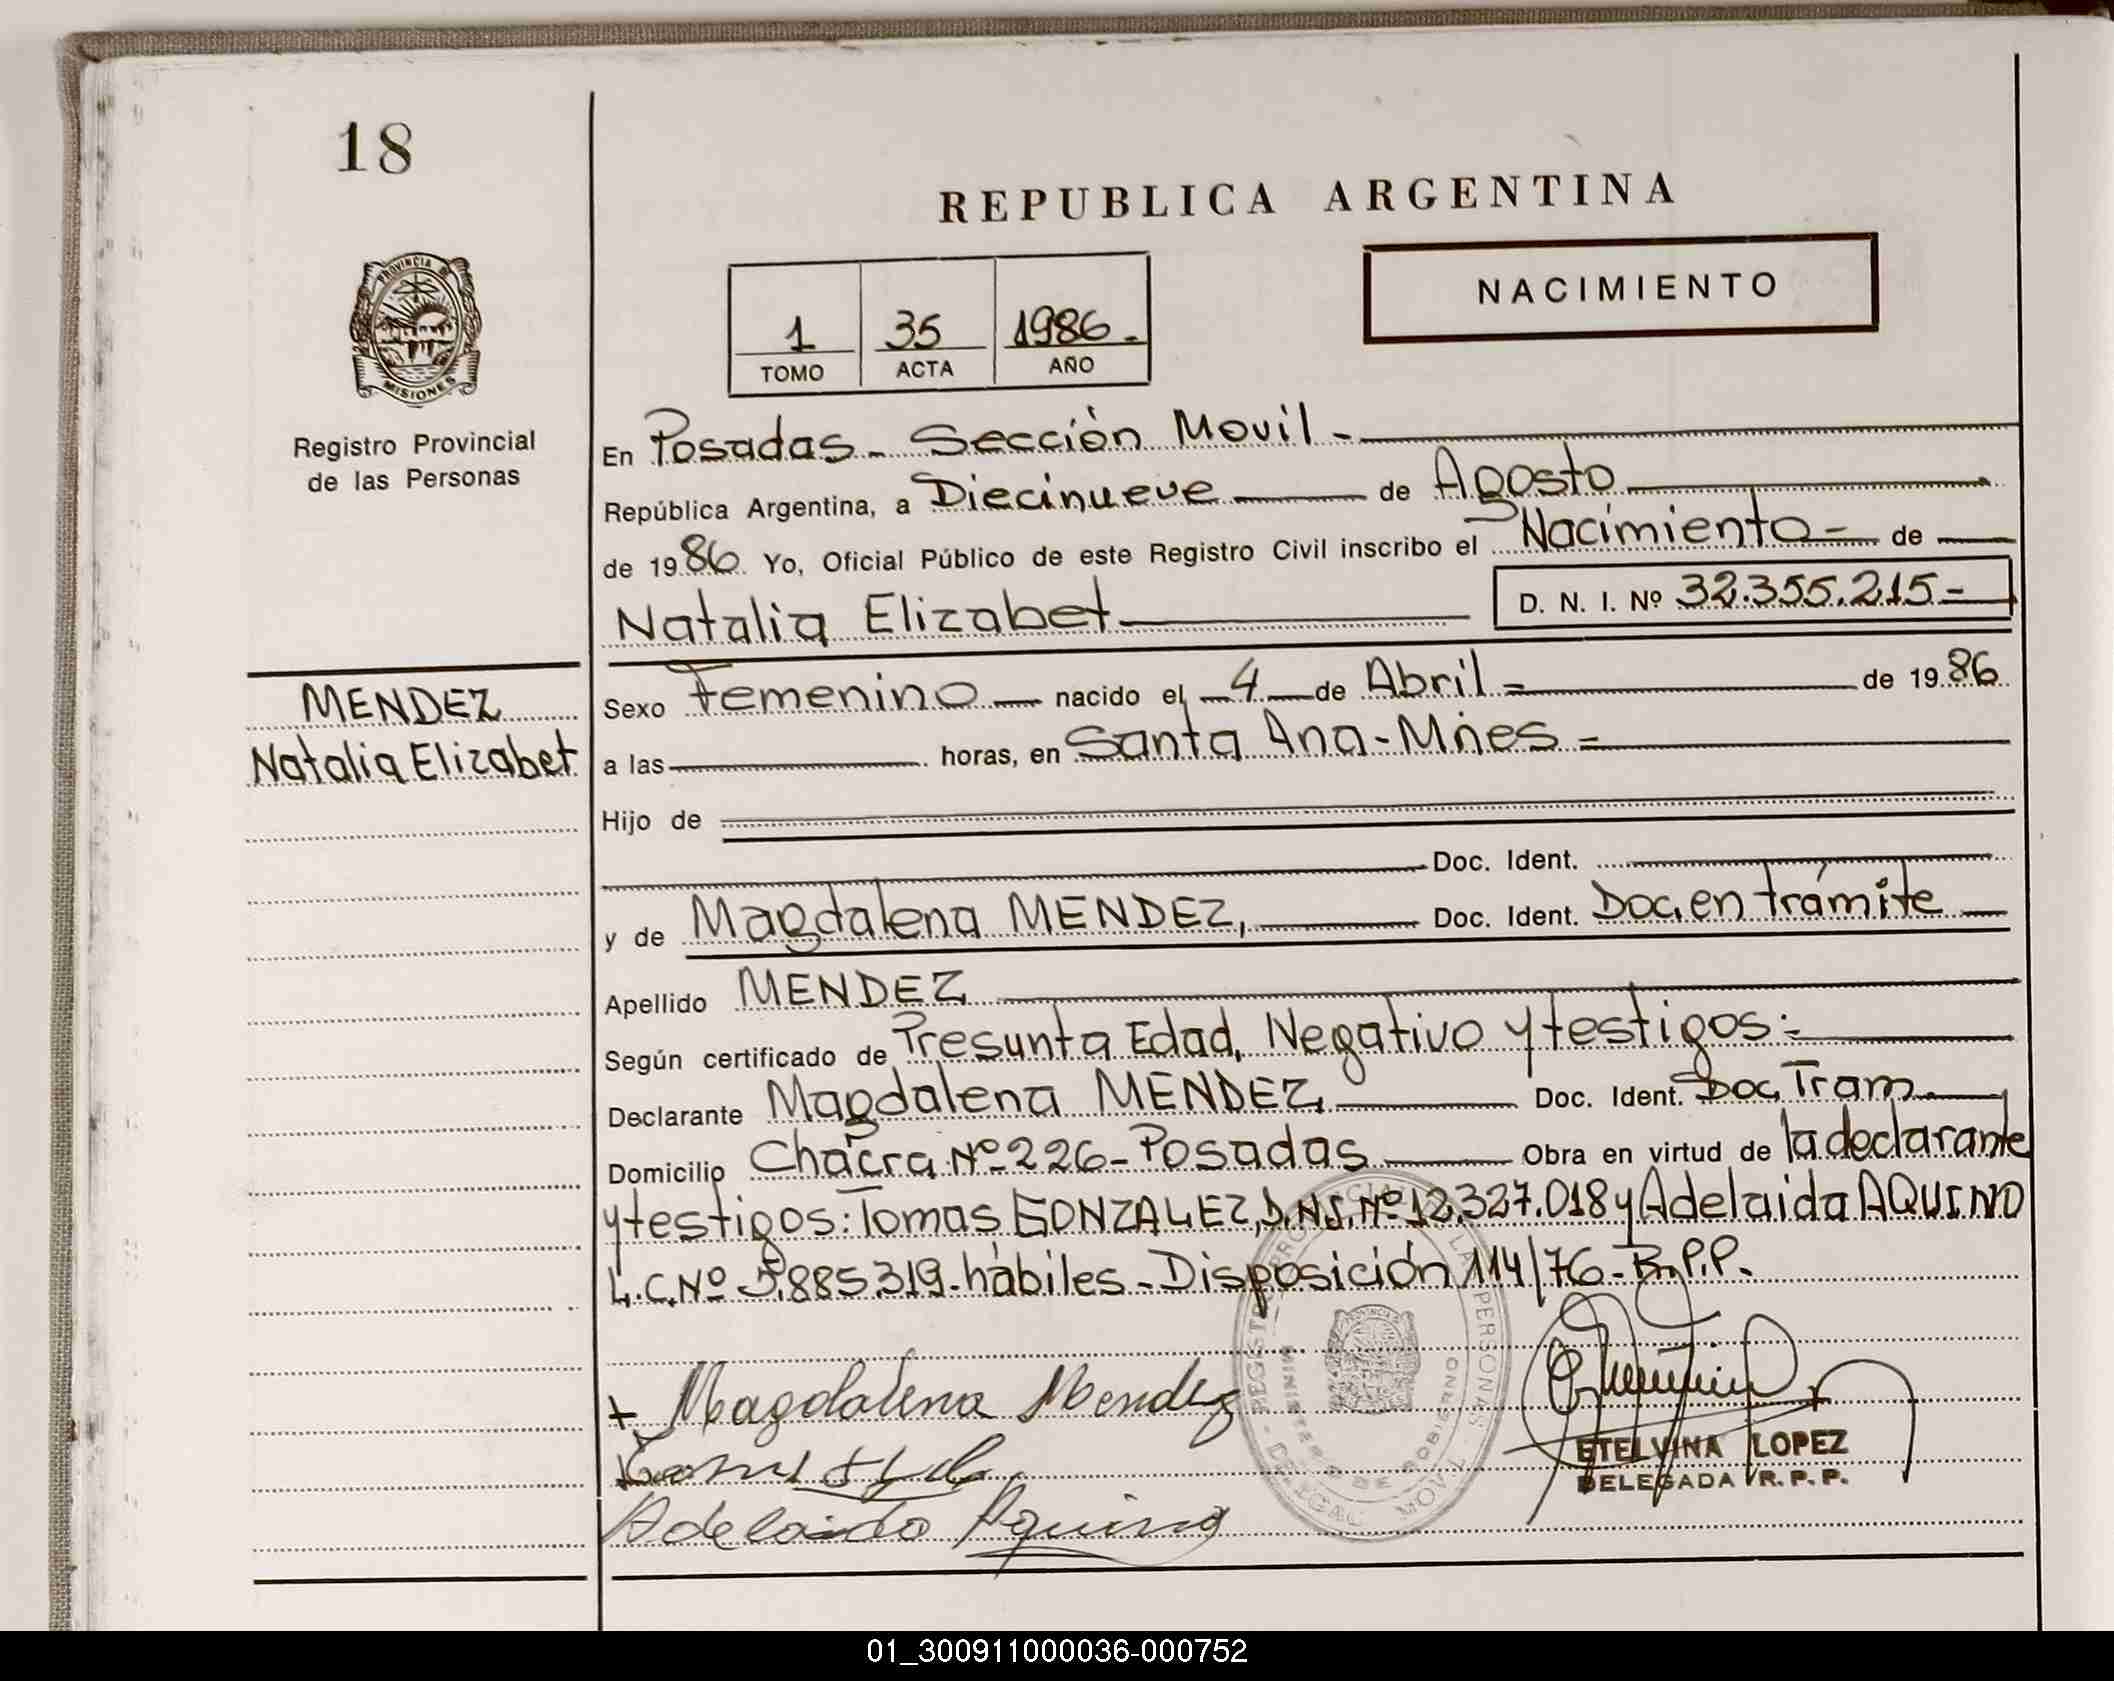 18
REPUBLICA ARGENTINA
NACIMIENTO
1 35 1986.-
TOMO ACTA AÑO
PROVINCIA DE
MISIONES
Registro Provincial
de las Personas
En Posadas - Sección Movil.-
República Argentina, a Diecinueve de Agosto
de 1986 Yo, Oficial Público de este Registro Civil inscribo el Nacimiento - de
Natalia Elizabet D. N. I. Nº 32.355.215-
MENDEZ
Natalia Elizabet
Sexo Femenino nacido el 4 de Abril = de 1986
a las horas, en Santa Ana-Mnes =
Hijo de
Doc. Ident.
y de Magdalena MENDEZ, Doc. Ident. Doc. en trámite
Apellido MENDEZ
Según certificado de Presunta Edad, Negativo y testigos:-
Declarante Magdalena MENDEZ, Doc. Ident. Doc. Tram.
Domicilio Chacra Nº 226-Posadas Obra en virtud de la declarante
y testigos: Tomas GONZALEZ, D.N.I. Nº 12.327.018 y Adelaida AQUINO
L.C. Nº 5.885.319-hábiles-Disposición 114/76-R.P.P.
Magdalena Mendez
Adelaida Aquino
ETELVINA LOPEZ
DELEGADA R. P. P.
01_300911000036-000752